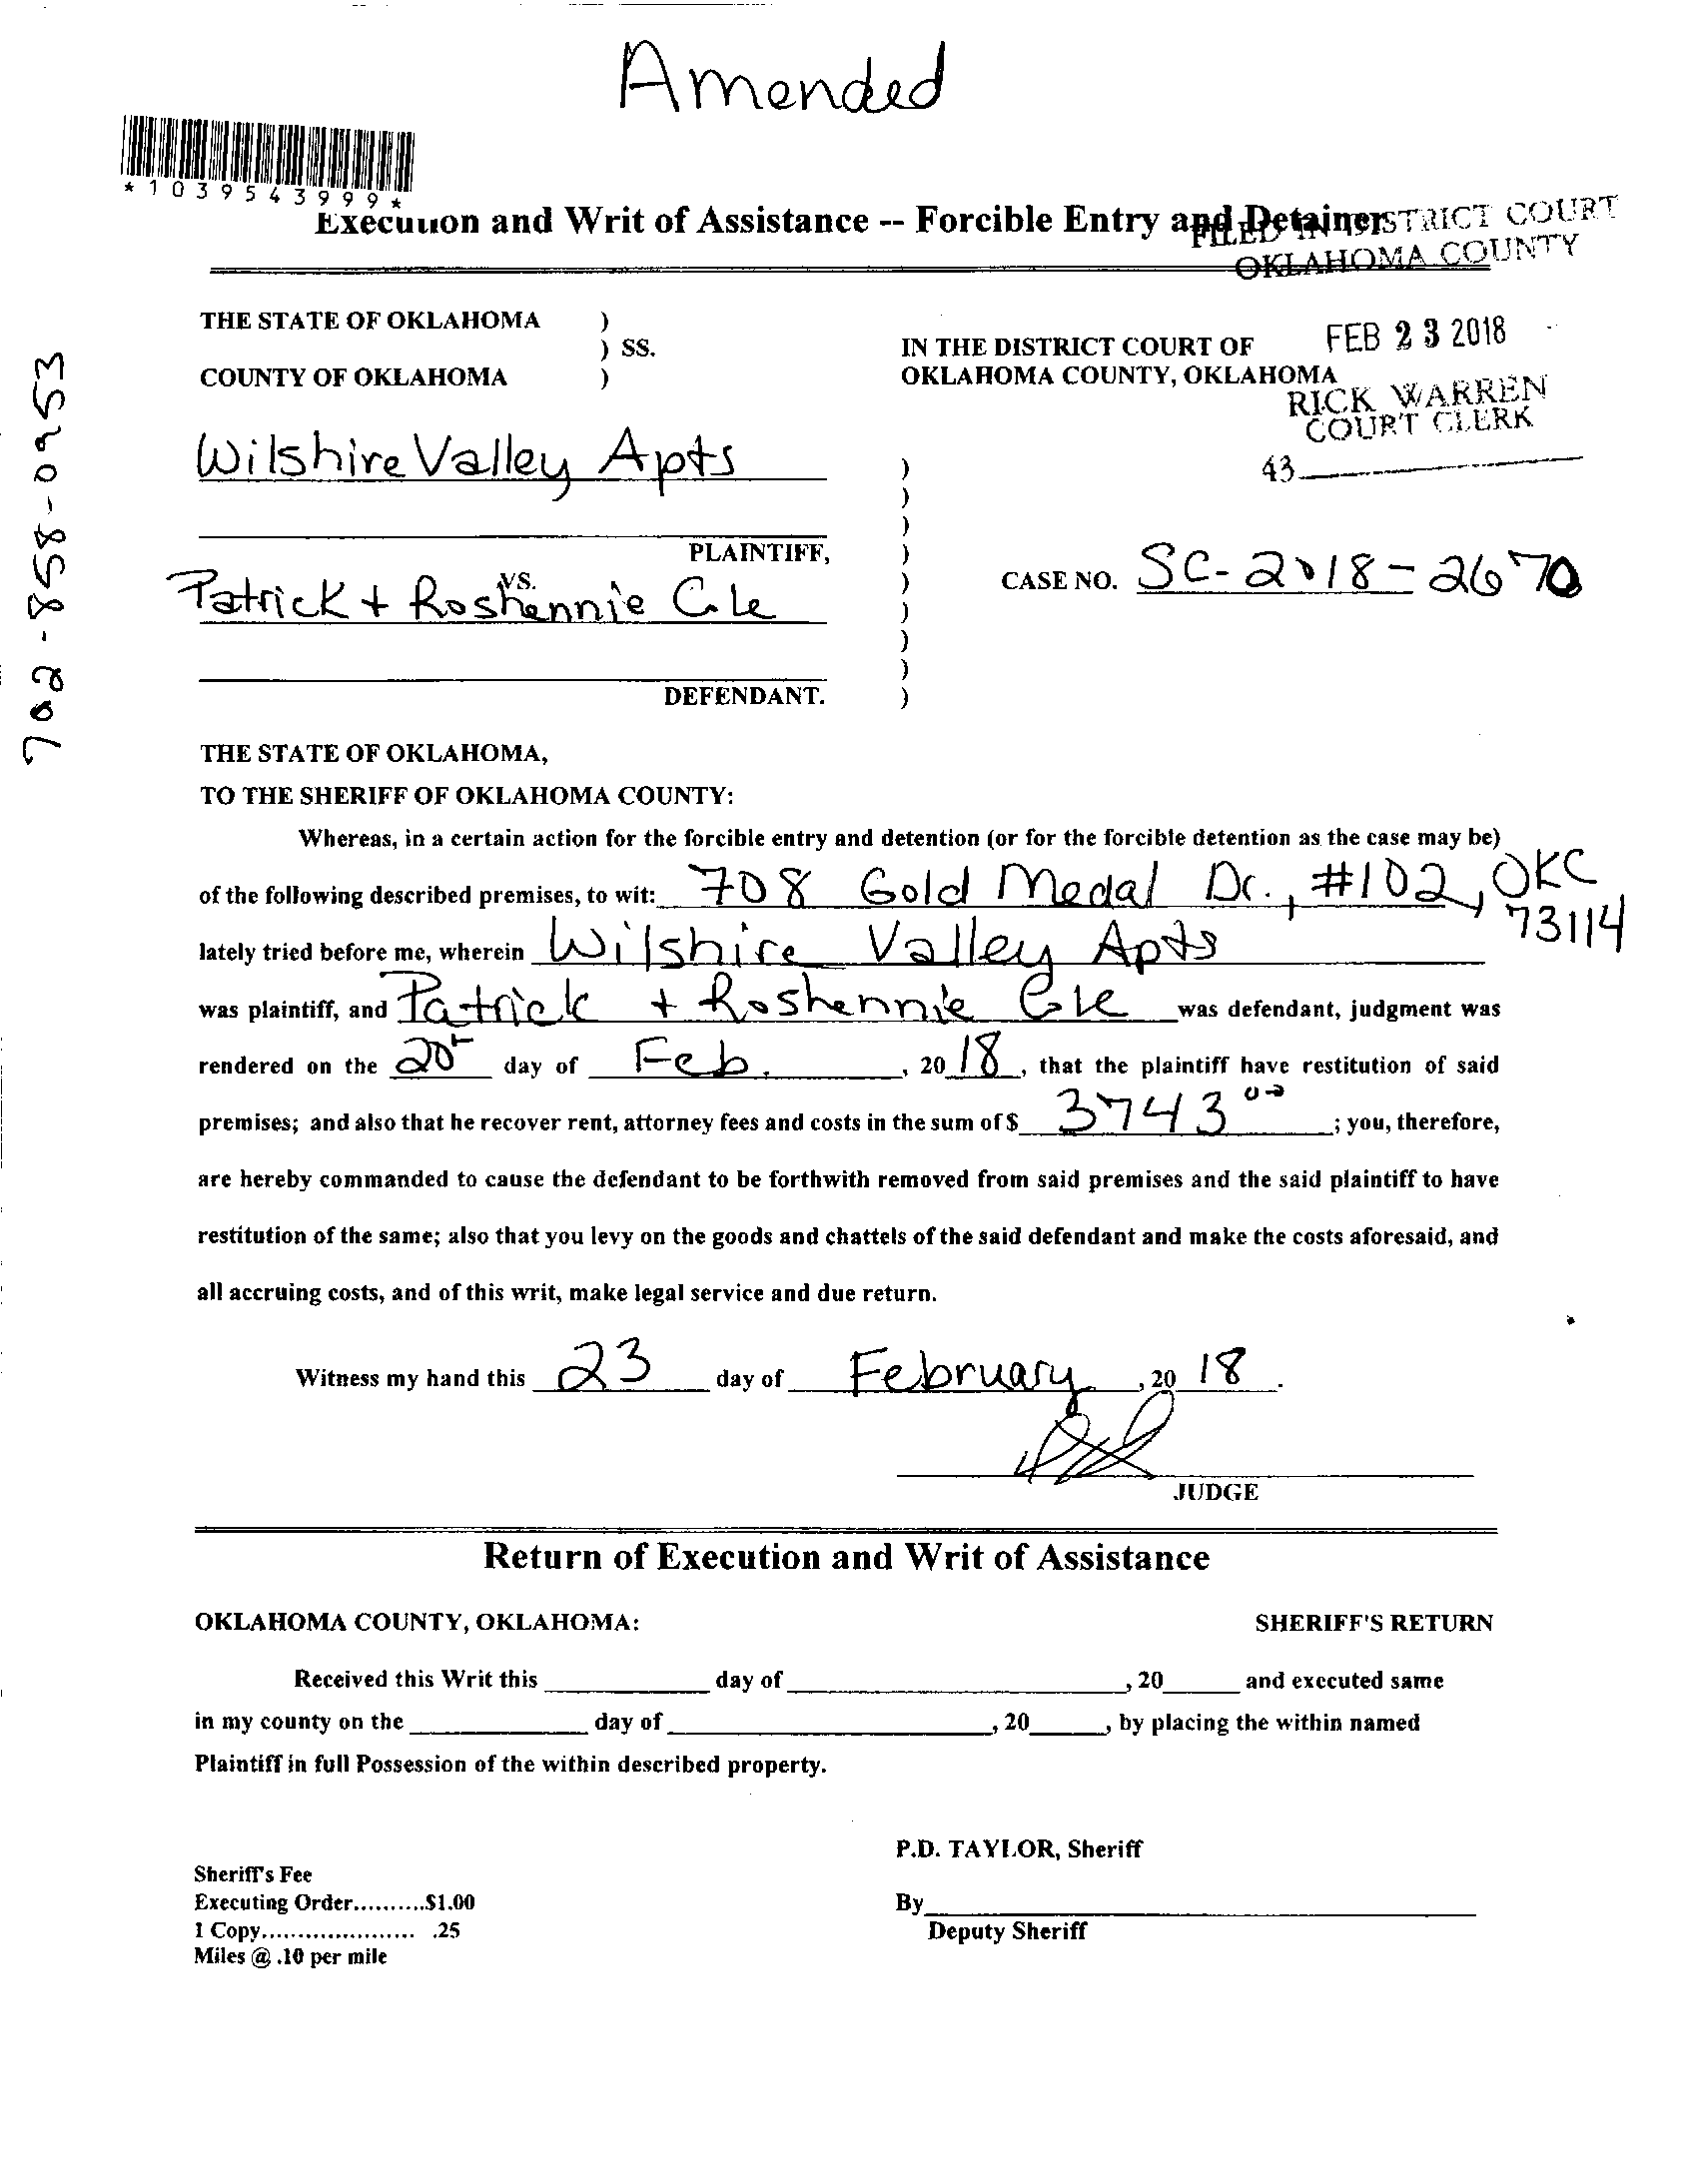 Amended
*1039543999*
Execution and Writ of Assistance -- Forcible Entry and Detainer
FILED IN DISTRICT COURT
OKLAHOMA COUNTY
FEB 23 2018
RICK WARREN
COURT CLERK
43
702-858-0953
THE STATE OF OKLAHOMA )
) SS.
COUNTY OF OKLAHOMA )
IN THE DISTRICT COURT OF
OKLAHOMA COUNTY, OKLAHOMA
Wilshire Valley Apts
PLAINTIFF,
VS.
Patrick + Roshennie Cole
DEFENDANT.
)
)
)
)
)
)
)
)
)
CASE NO. SC-2018-2670
THE STATE OF OKLAHOMA,
TO THE SHERIFF OF OKLAHOMA COUNTY:
Whereas, in a certain action for the forcible entry and detention (or for the forcible detention as the case may be)
of the following described premises, to wit: 708 Gold Medal Dr., #102, OKC
73114
lately tried before me, wherein Wilshire Valley Apts
was plaintiff, and Patrick + Roshennie Cole was defendant, judgment was
rendered on the 20 day of Feb. , 20 18, that the plaintiff have restitution of said
premises; and also that he recover rent, attorney fees and costs in the sum of $ 3743 00 ; you, therefore,
are hereby commanded to cause the defendant to be forthwith removed from said premises and the said plaintiff to have
restitution of the same; also that you levy on the goods and chattels of the said defendant and make the costs aforesaid, and
all accruing costs, and of this writ, make legal service and due return.
Witness my hand this 23 day of February , 20 18 .
JUDGE
Return of Execution and Writ of Assistance
OKLAHOMA COUNTY, OKLAHOMA: SHERIFF'S RETURN
Received this Writ this ________ day of ________, 20____ and executed same
in my county on the ________ day of ________, 20____, by placing the within named
Plaintiff in full Possession of the within described property.
P.D. TAYLOR, Sheriff
Sheriff's Fee
Executing Order..........$1.00
1 Copy..................... .25
Miles @ .10 per mile
By________
Deputy Sheriff